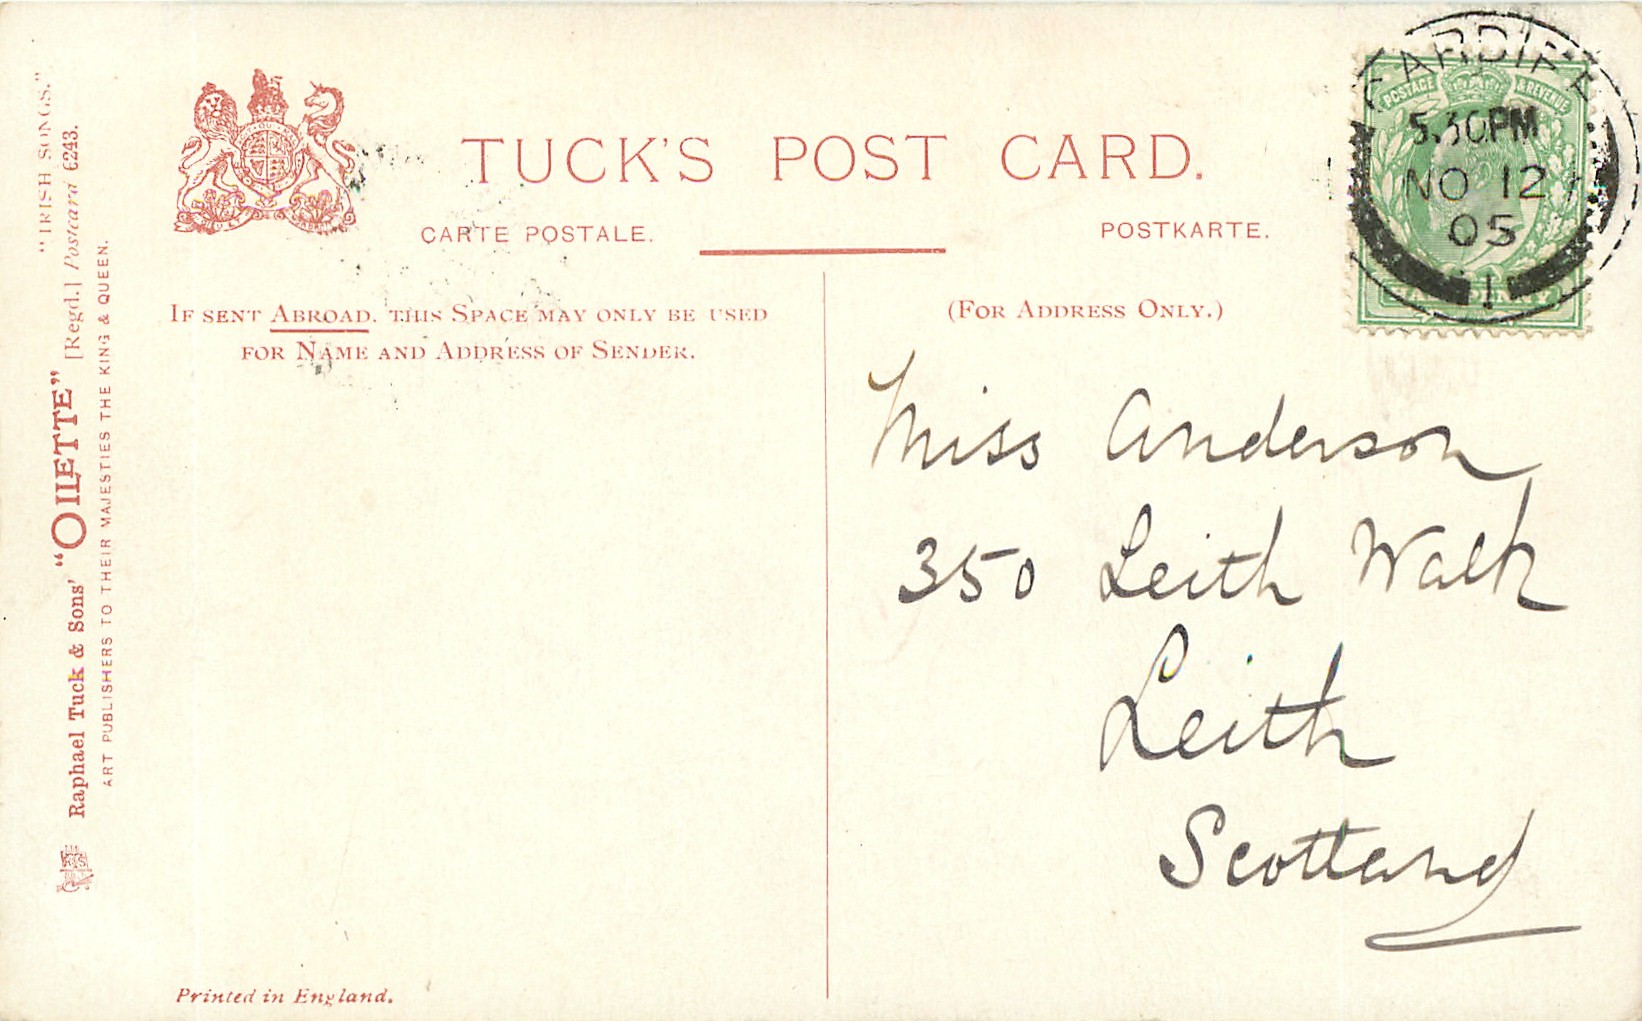 "IRISH SONGS."
Raphael Tuck & Sons' "OILETTE" [Regd.] Postcard 6243.
ART PUBLISHERS TO THEIR MAJESTIES THE KING & QUEEN.
TUCK'S POST CARD.
CARTE POSTALE.
POSTKARTE.
IF SENT ABROAD. THIS SPACE MAY ONLY BE USED
FOR NAME AND ADDRESS OF SENDER.
(FOR ADDRESS ONLY.)
POSTAGE & REVENUE
CARDIFF
5.30PM
NO 12
05
1
Miss Anderson
350 Leith Walk
Leith
Scotland
Printed in England.